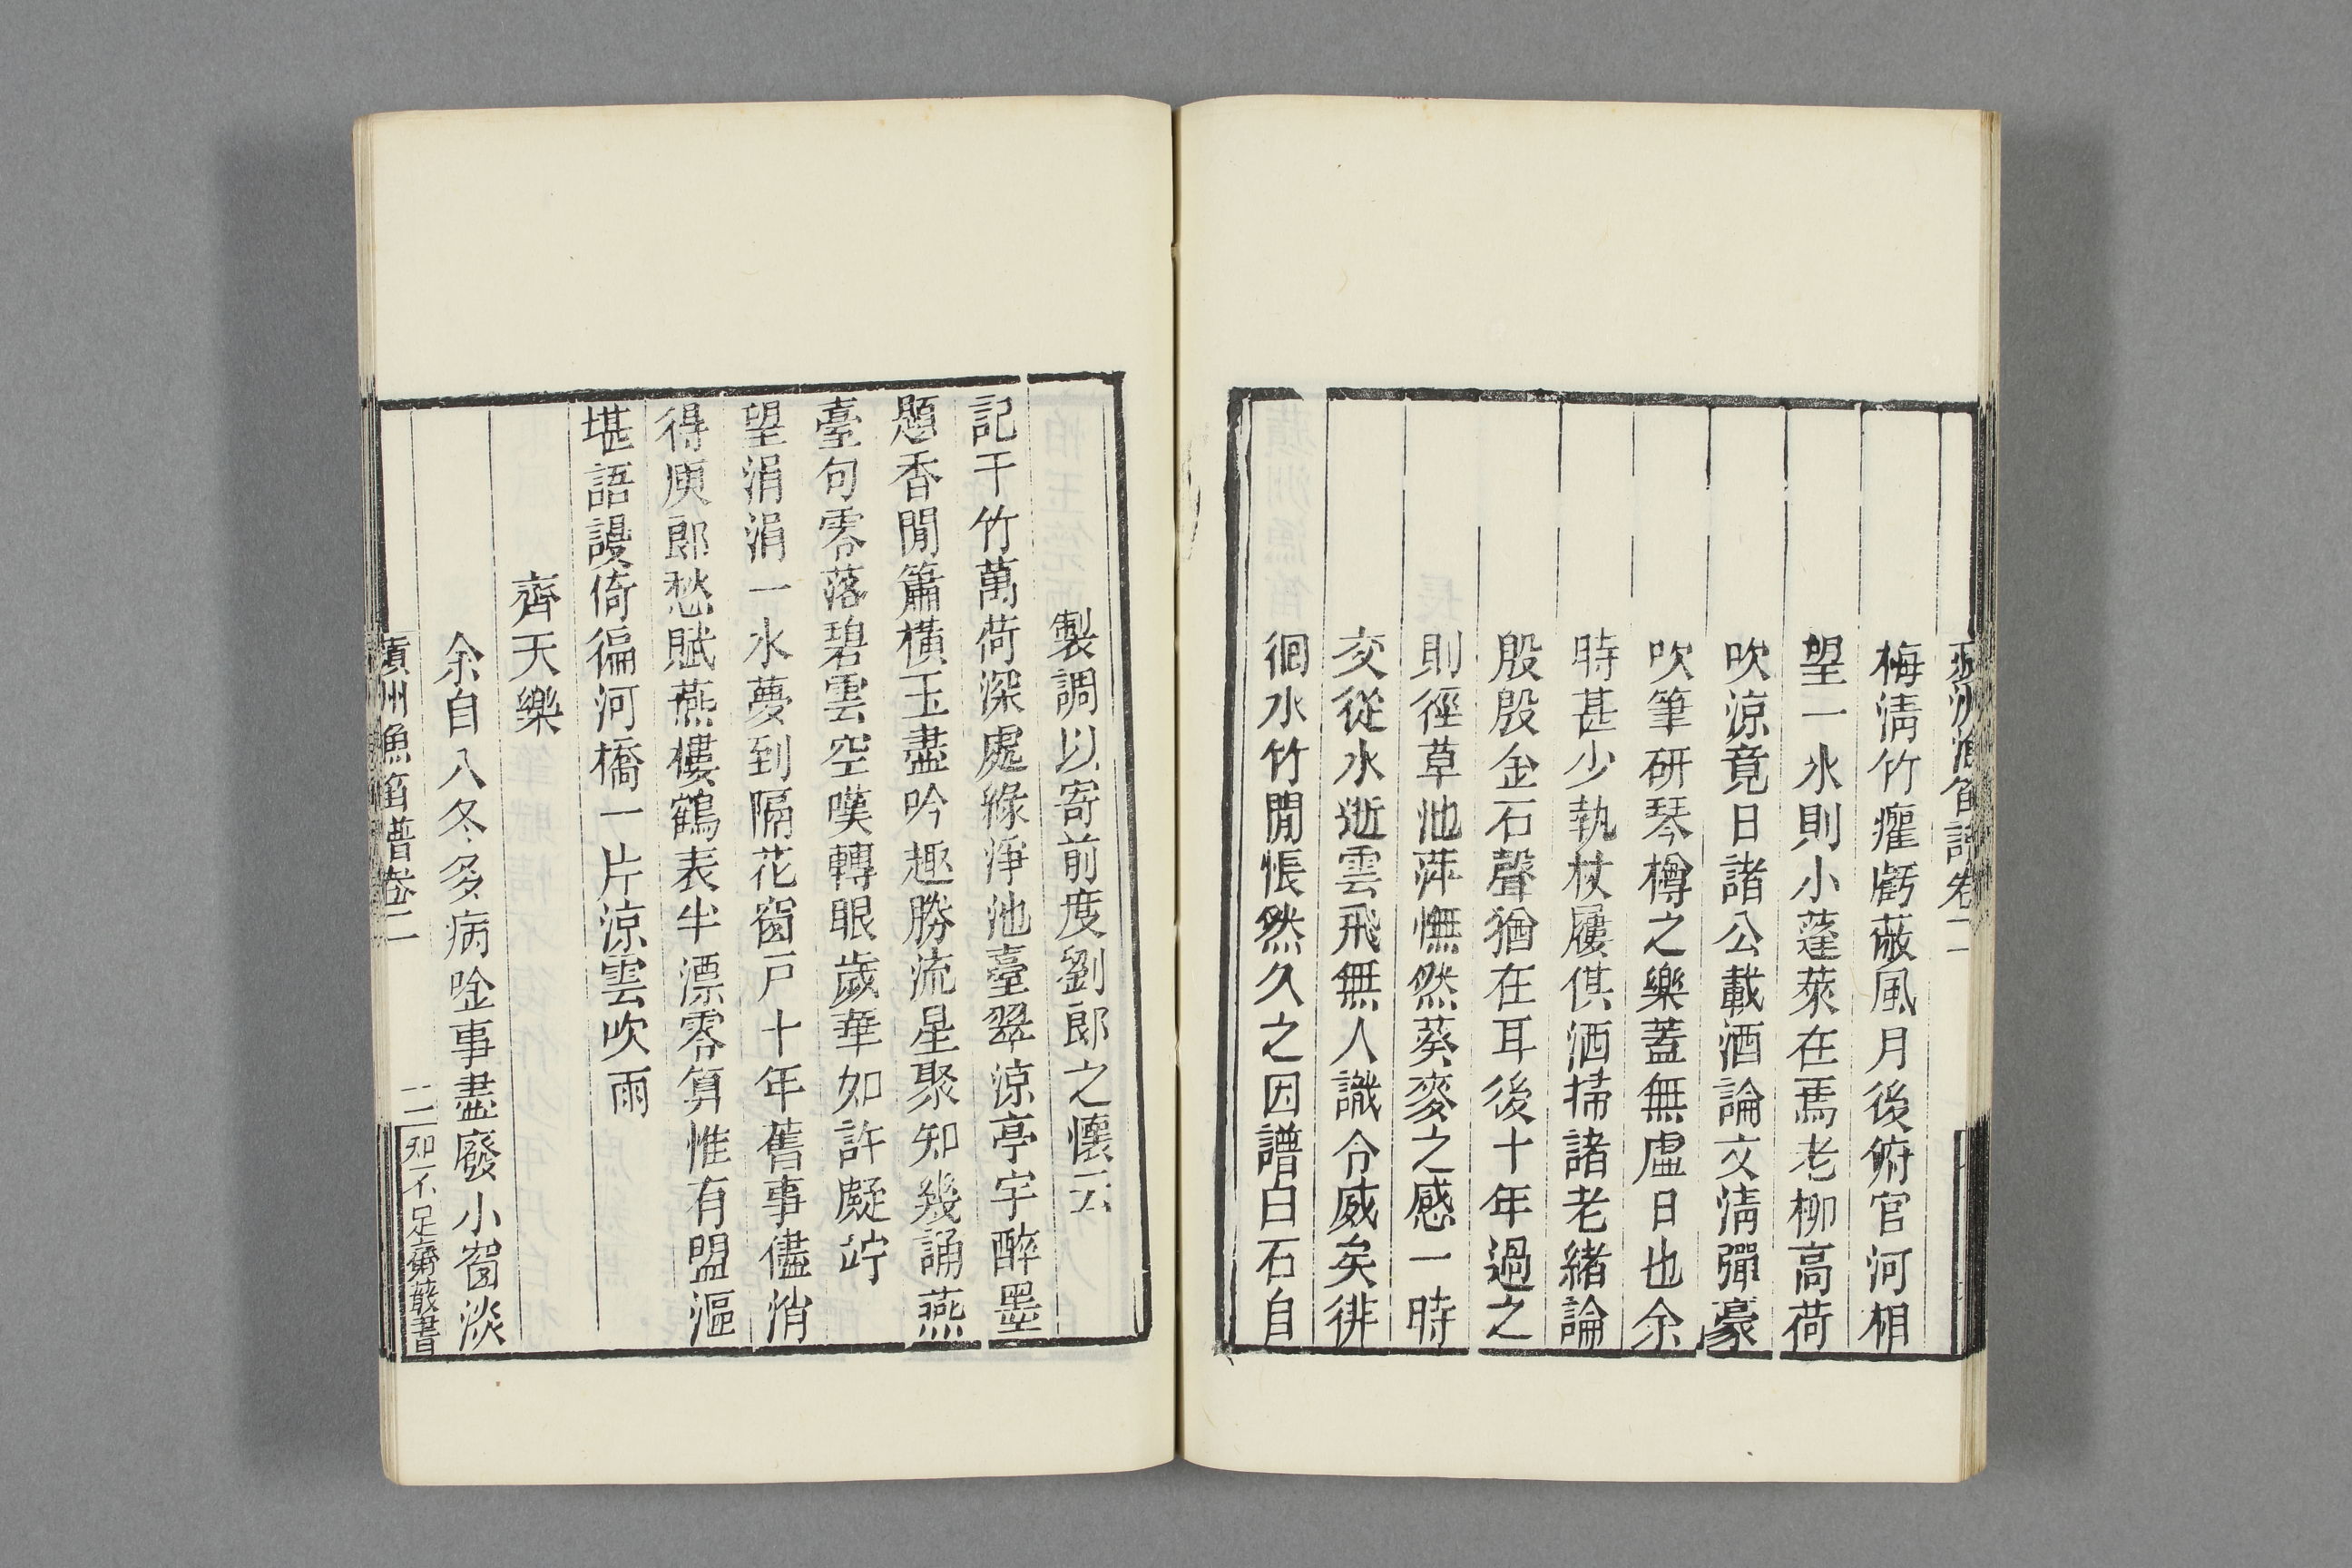 梅淸竹癯虧蔽風月後俯官河相
望一水則小蓬萊在焉老柳高荷
吹涼竟日諸公載酒論文淸彈豪
吹筆研琴樽之樂蓋無虛日也余
時甚少執杖屨供洒掃諸老緒論
殷殷金石聲猶在耳後十年過之
則徑草池萍憮然葵麥之感一時
交從水逝雲飛無人識令威矣徘
徊水竹閒悵然久之因譜白石自
製調以寄前度劉郎之懷云
記千竹萬荷深處綠淨池臺翠涼亭宇醉墨
題香閒簫橫玉盡吟趣勝流星聚知幾誦燕
臺句零落碧雲空嘆轉眼歲華如許凝竚
望涓涓一水夢到隔花窗戸十年舊事儘消
得庾郎愁賦燕樓鶴表半漂零算惟有盟漚
堪語謾倚徧河橋一片涼雲吹雨
齊天樂
余自入冬多病唫事盡廢小窗淡
蘋洲漁笛譜卷二
二
知不足齋叢書